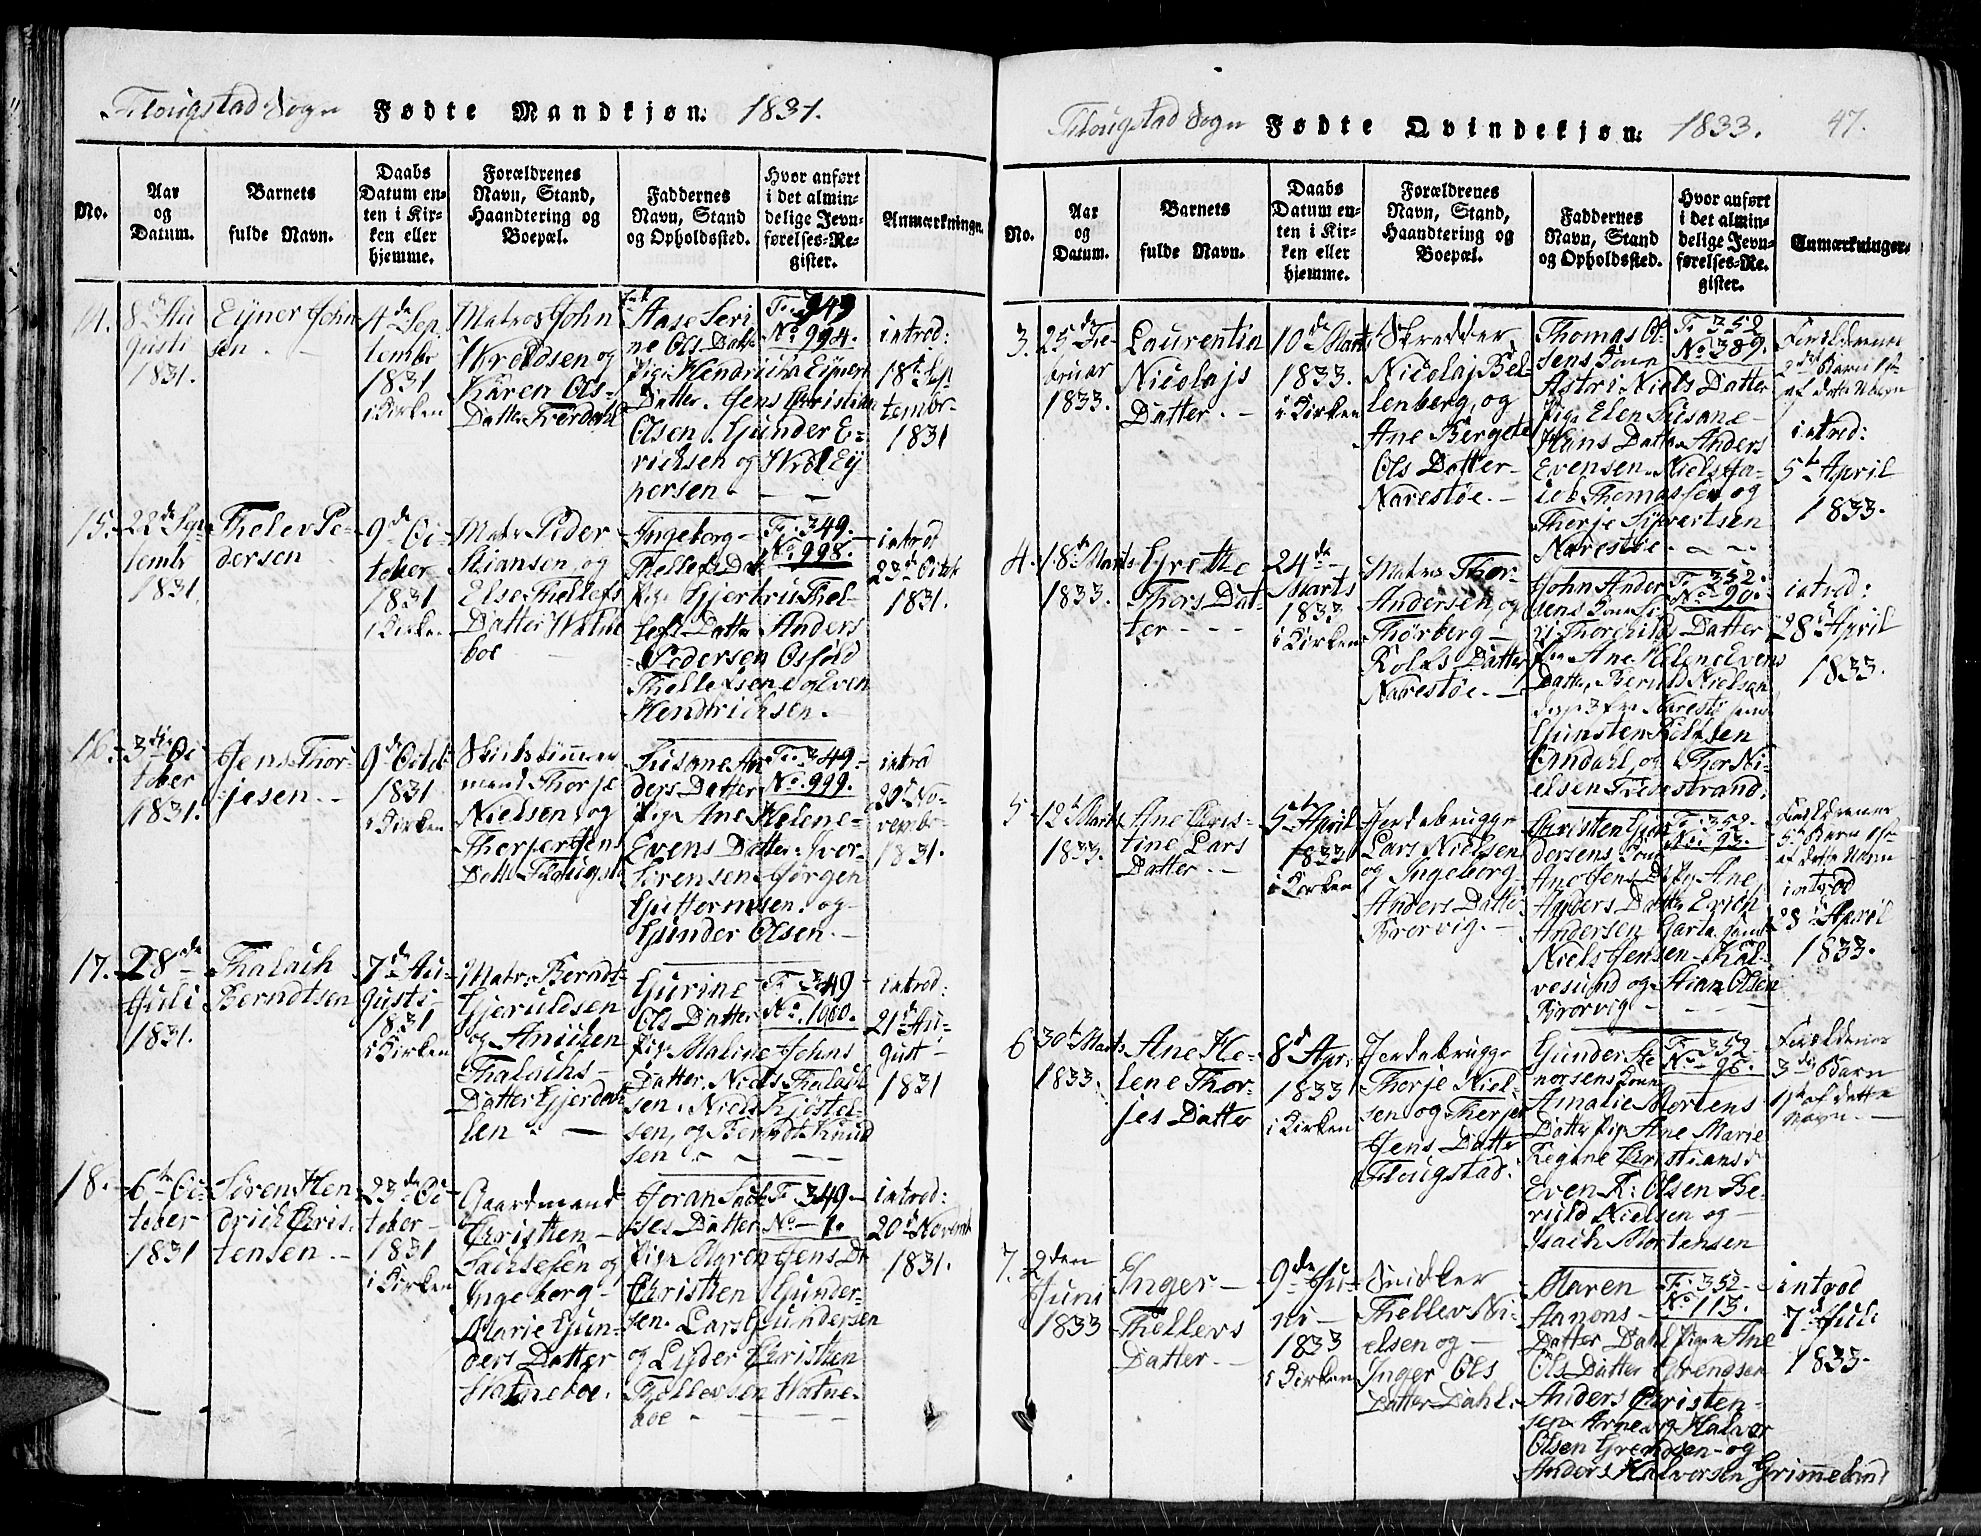 Flougstad Sogn Fødte Mandkjøn: 1831.
No.
Aar
og
Datum.
Barnets
fulde Navn.
Daabs
Datum en-
ten i Kir-
ken eller
hjemme.
Forældrenes
Navn, Stand,
Haandtering og
Boepæl.
Faddernes
Navn, Stand
og Opholdssted.
Hvor anført
i det almin-
delige Jevn-
førelses-Re-
gister.
Anmærkninge
14.
8de Au
gusti
1831.
Ejner John
sen.
4de Sep
tembr
1831
i Kirken
Matros John
og
Karen Ols-
Datter
Aase Seri
ne Ols Datter
pige Hendricha Ejners
Datter. Jens Christian
Olsen. Gunder E-
richsen og Ej
nersen.
F. 349
No. 994.
introd:
18de Sep
tembr-
1831
15.
22de Sep
tembr
1831.
Thelev Pe-
dersen
9de Oc-
tober
1831
i Kirken
Matr. Peder
Stiansen, og
Else Thellefs
Datter Watne
boe
Ingeborg-
Thellefs Dat
pige Gjertru Thel-
lefs Datter Anders
Pedersen Osfold
Thellefsen og Even
Hendrichsen.
F. 349.
No. 998.
introd
23de Octob
1831.
16.
3die Oc
tober
1831.
Jens Thor-
jesen.
9de Octob
1831
i Kirken
mand Thorje
Nielsen, og
Therjer Jens
Datt Flougst
Susane An
ders Datter
pige Ane Helene-
Evens Datter. Ivor-
Sørensen. Jørgen
Guttormsen. og
Gunder Olsen.
F. 349-
No. 999.
introd
20de No-
vembr-
1831.
17.
28de
Juli
1831.
Thalach
Berndtsen
7de Au-
gusti-
1831
i Kirken
Matr: Berndt
Gjeruldsen
og Anichen
Thalachs-
Datter Gjerdal-
len
Gurine-
Ols Datter
pige Maline Johns
Datter. Niels Thalach
sen. Niels Kjøstel-
sen, og Berndt Knud
sen
F. 349
No. 1000.
introd:
21de Au-
gust-
1831
18.
6te Oc-
tober
1831
Søren Hen
drich Chris-
tensen.
23de Oc-
tober-
1831
i Kirken
Gaardmand
Christen-
Sachsesen og
Ingeborg-
Marie Gun-
ders Datter
Watneboe.
Joran Sach
ses Datter
pige Maren Jens Dr
Christen Gunder-
sen. Lars Gundersen
og Lyder Christen
Thellevsen Watne-
boe
F. 349-
No - 1.
introd:
20de Novemb
1831.
Flougstad Sogn Fødte Qvindekjøn: 1833. 47.
No.
Aar
og
Datum.
Barnets
fulde Navn.
Daabs
Datum en-
ten i Kir-
ken eller
hjemme.
Forældrenes
Navn, Stand,
Haandtering og
Boepæl.
Faddernes
Navn, Stand
og Opholdssted.
Hvor anført
i det almin-
delige Jevn-
førelses-Re-
gister.
Anmærkninger.
3.
25de Fe-
bruar
1833.
Laurentia
Nicolajs
Datter.
10de Marts
1833.
i Kirken
Skredder
Nicolaj Bel-
lenberg, og
Ane Bergete
Ols Datter-
Narestøe.
Thomas Ol-
sens Kone
Astri Niels Datter
pige Elen Susane-
Hans Datter Anders
Evensen. Niels Ja-
cob Thomassen og
Therje Sivertsen
Narestøe.
F. 352
No. 389.
Forældrenes
2det Barn 1ste
af dette Navn
introd:
5te April
1833.
4.
18de Marts
1833.
Grette
Thors Dat-
ter
24de
Marts
1833
i Kirken
Matros Thor-
Andersen, og
Thørberg-
Rolfs Datter
Narestøe.
John Ander
sens Kone
Thorchilds Datter
pige Ane Helene Evens
Datter, Beruld Nielsen
disse 3 fra Narestø
Gunsten Rolfsen
Arndahl, og Thor Ni-
elsen Tvedestrand.
F. 352.
No. 90.
introd:
28de April
1833.
5
12te Marts
1833.
Ane Chris-
tine Lars
Datter.
5te April
1833
i Kirken
Jordebrugge
Lars Nielsen
og Ingeborg-
Anders Datter
Brorvig.
Christen Gun
dersens Kone
Ane Jens Dr pige Ane
Anders Datter Erich
Andersen Garta
Niels Jensen
vesund og Stian Olsen
Brorvig
F. 352.
No. 93.
Forældrenes
5te Barn 1ste
af dette Navn
introd
28de April
1833.
6
30te Marts
1833.
Ane He-
lene Thor-
jes Datter
8de Apr:
1833
i Kirken
Jordebrugge
Thorje Niel-
sen og Therjer
Jens Datter
Flougstad.
Gunder
norsens Kone
Amalie Mortens
Datter pige Ane Marie
Regine Christians d
Even R: Olsen Be-
ruld Nielsen og-
Isach Mortensen
F. 352
No. 96.
Forældrenes
3die Barn
1ste af dette
Navn.
7.
2den
Juni
1833
Inger-
Thellevs
Datter.
9de Ju-
ni-
1833
i Kirken
Snidker
Thellev Ni-
elsen og-
Inger Ols
Datter Dahl.
Maren
Aanons-
Datter Dahl pige Ane
Ols Datter Grendsen
Anders Christen-
sen Arne og Halvor
Olsen Grendsen- og
Anders Halvorsen Grimeland
F. 352-
No. 113.
introd
7de Juli
1833.